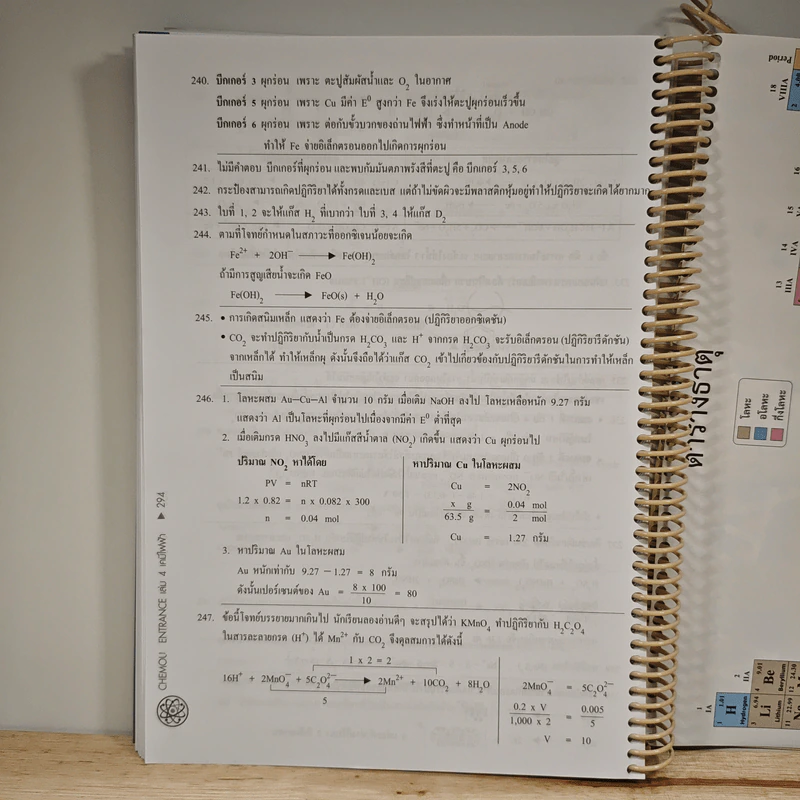 240. บีกเกอร์ 3 ผุกร่อน เพราะ ตะปูสัมผัสน้ำและ O₂ ในอากาศ
บีกเกอร์ 5 ผุกร่อน เพราะ Cu มีค่า E⁰ สูงกว่า Fe จึงเร่งให้ตะปูผุกร่อนเร็วขึ้น
บีกเกอร์ 6 ผุกร่อน เพราะ ต่อกับขั้วบวกของถ่านไฟฟ้า ซึ่งทำหน้าที่เป็น Anode
ทำให้ Fe จ่ายอิเล็กตรอนออกไปเกิดการผุกร่อน
241. ไม่มีคำตอบ บีกเกอร์ที่ผุกร่อน และพบกัมมันตภาพรังสีที่ตะปู คือ บีกเกอร์ 3, 5, 6
242. กระป๋องสามารถเกิดปฏิกิริยาได้ทั้งกรดและเบส แต่ถ้าไม่ขัดผิวจะมีพลาสติกหุ้มอยู่ทำให้ปฏิกิริยาจะเกิดได้ยากมาก
243. ใบที่ 1, 2 จะให้แก๊ส H₂ ที่เบากว่า ใบที่ 3, 4 ให้แก๊ส D₂
244. ตามที่โจทย์กำหนดในสภาวะที่ออกซิเจนน้อยจะเกิด
Fe²⁺ + 2OH⁻ ⟶ Fe(OH)₂
ถ้ามีการสูญเสียน้ำจะเกิด FeO
Fe(OH)₂ ⟶ FeO(s) + H₂O
245. • การเกิดสนิมเหล็ก แสดงว่า Fe ต้องจ่ายอิเล็กตรอน (ปฏิกิริยาออกซิเดชัน)
• CO₂ จะทำปฏิกิริยากับน้ำเป็นกรด H₂CO₃ และ H⁺ จากกรด H₂CO₃ จะรับอิเล็กตรอน (ปฏิกิริยารีดักชัน)
จากเหล็กได้ ทำให้เหล็กผุ ดังนั้นจึงถือได้ว่าแก๊ส CO₂ เข้าไปเกี่ยวข้องกับปฏิกิริยารีดักชันในการทำให้เหล็ก
เป็นสนิม
246. 1. โลหะผสม Au–Cu–Al จำนวน 10 กรัม เมื่อเติม NaOH ลงไป โลหะเหลือหนัก 9.27 กรัม
แสดงว่า Al เป็นโลหะที่ผุกร่อนไปเนื่องจากมีค่า E⁰ ต่ำที่สุด
2. เมื่อเติมกรด HNO₃ ลงไปมีแก๊สสีน้ำตาล (NO₂) เกิดขึ้น แสดงว่า Cu ผุกร่อนไป
ปริมาณ NO₂ หาได้โดย
PV = nRT
1.2 x 0.82 = n x 0.082 x 300
n = 0.04 mol
หาปริมาณ Cu ในโลหะผสม
Cu = 2NO₂
x g / 63.5 g = 0.04 mol / 2 mol
Cu = 1.27 กรัม
3. หาปริมาณ Au ในโลหะผสม
Au หนักเท่ากับ 9.27 – 1.27 = 8 กรัม
ดังนั้นเปอร์เซนต์ของ Au = 8 x 100 / 10 = 80
247. ข้อนี้โจทย์บรรยายมากเกินไป นักเรียนลองอ่านดีๆ จะสรุปได้ว่า KMnO₄ ทำปฏิกิริยากับ H₂C₂O₄
ในสารละลายกรด (H⁺) ได้ Mn²⁺ กับ CO₂ จึงดุลสมการได้ดังนี้
1 x 2 = 2
16H⁺ + 2MnO₄⁻ + 5C₂O₄²⁻ ⟶ 2Mn²⁺ + 10CO₂ + 8H₂O
5
2MnO₄⁻ = 5C₂O₄²⁻
0.2 x V / 1,000 x 2 = 0.005 / 5
V = 10
CHEMOU ENTRANCE เล่ม 4 เคมีไฟฟ้า ▶ 294
ตารางธาตุ
โลหะ
อโลหะ
กึ่งโลหะ
Period
18
VIIIA
16
15
14
IVA
13
IIIA
2
IIA
1
IA
1 1.01
H
Hydrogen
3 6.94
Li
Lithium
4 9.01
Be
Beryllium
11 22.99
12 24.30